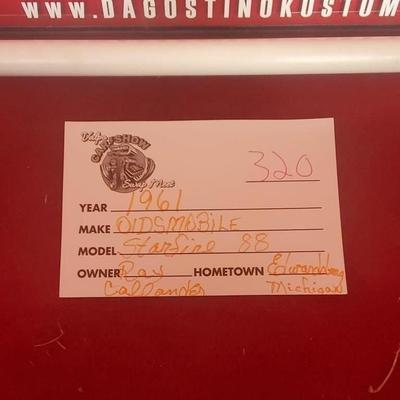 www.DAGOSTINOKUSTOM
CAR SHOW
Swap Meet
320
YEAR 1961
MAKE OLDSMOBILE
MODEL Starfire 88
OWNER Ray HOMETOWN
Michigan